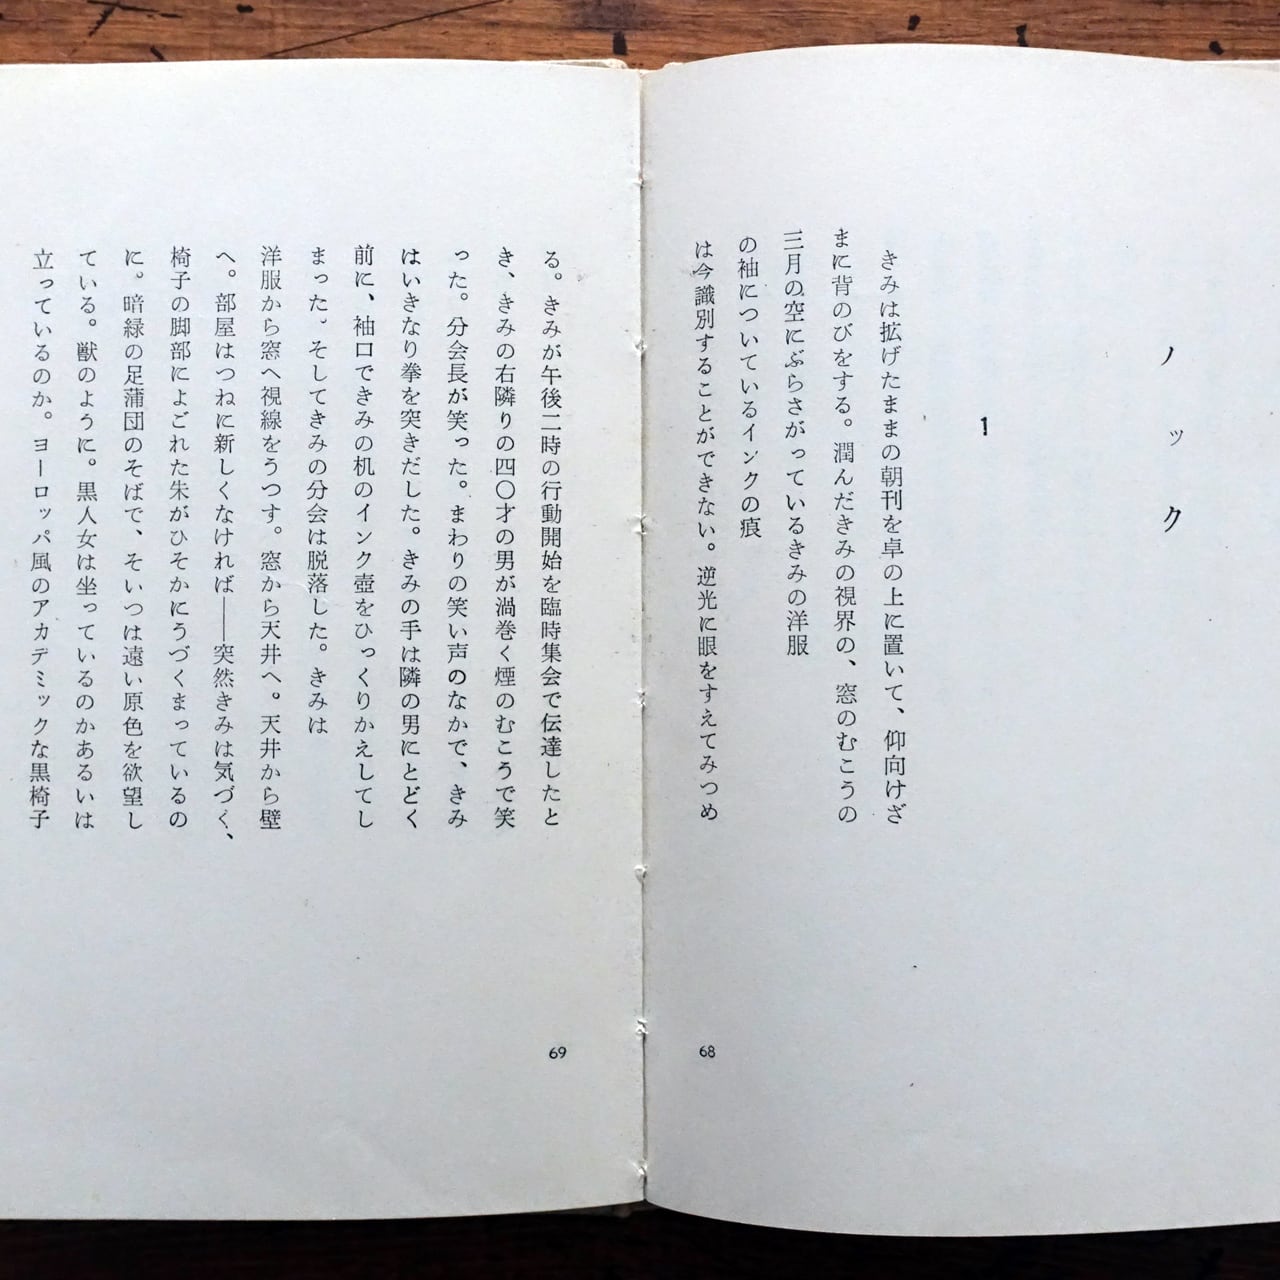 ノック
1
きみは拡げたままの朝刊を卓の上に置いて、仰向けざ
まに背のびをする。潤んだきみの視界の、窓のむこうの
三月の空にぶらさがっているきみの洋服
の袖についているインクの痕
は今識別することができない。逆光に眼をすえてみつめ
68
る。きみが午後二時の行動開始を臨時集会で伝達したと
き、きみの右隣りの四〇才の男が渦巻く煙のむこうで笑
った。分会長が笑った。まわりの笑い声のなかで、きみ
はいきなり拳を突きだした。きみの手は隣の男にとどく
前に、袖口できみの机のインク壺をひっくりかえしてし
まった。そしてきみの分会は脱落した。きみは
洋服から窓へ視線をうつす。窓から天井へ。天井から壁
へ。部屋はつねに新しくなければ――突然きみは気づく、
椅子の脚部によごれた朱がひそかにうづくまっているの
に。暗緑の足蒲団のそばで、そいつは遠い原色を欲望し
ている。獣のように。黒人女は坐っているのかあるいは
立っているのか。ヨーロッパ風のアカデミックな黒椅子
69